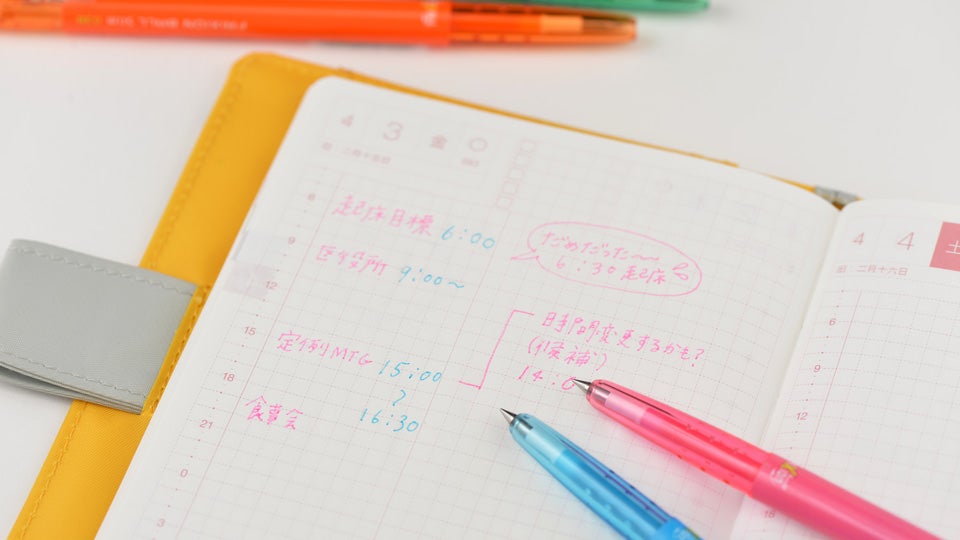 4 3 金
旧:二月十五日
6
起床目標 6:00
だめだった〜〜
6:30起床
9
区役所 9:00〜
12
時間変更するかも?
(候補)
14:0
15
定例MTG 15:00
〜
16:30
18
食事会
21
0
3
4 4 土
旧:二月十六日
6
9
12
18